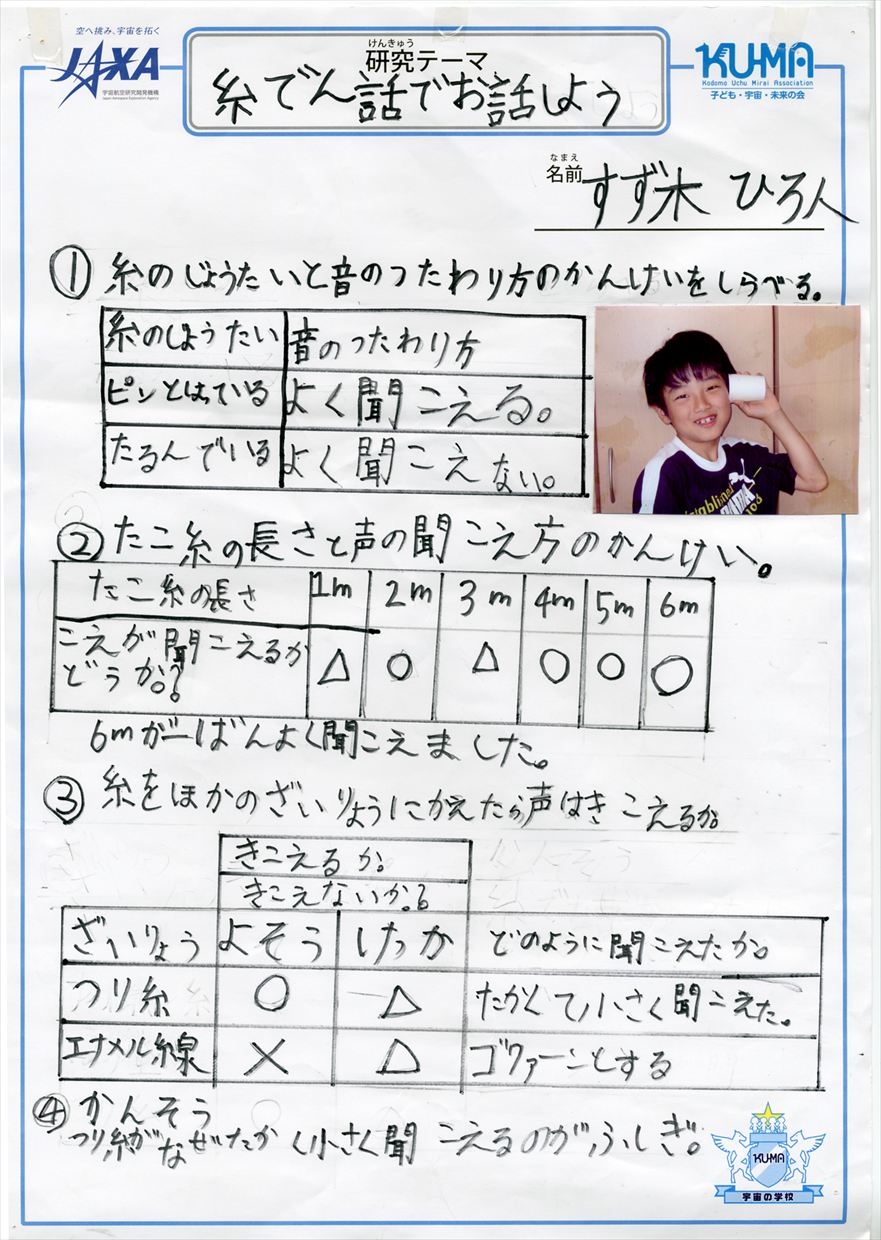 空へ挑み、宇宙を拓く
JAXA
宇宙航空研究開発機構
Japan Aerospace Exploration Agency
けんきゅう
研究テーマ
糸でん話でお話しよう
KU-MA
Kodomo Uchu Mirai Association
子ども・宇宙・未来の会
なまえ
名前 すず木 ひろ人
① 糸のじょうたいと音のつたわり方のかんけいをしらべる。
糸のじょうたい 音のつたわり方
ピンとはっている よく聞こえる。
たるんでいる よく聞こえない。
② たこ糸の長さと声の聞こえ方のかんけい。
たこ糸の長さ 1m 2m 3m 4m 5m 6m
こえが聞こえるか
どうか。? △ ○ △ ○ ○ ○
6mが一ばんよく聞こえました。
③ 糸をほかのざいりょうにかえたら声はきこえるか。
きこえるか。
きこえないか。
ざいりょう よそう けっか どのように聞こえたか。
つり糸 ○ △ たかくて小さく聞こえた。
エナメル線 × △ ゴワァーンとする
④ かんそう
つり糸がなぜたかく小さく聞こえるのがふしぎ。
KU-MA
宇宙の学校